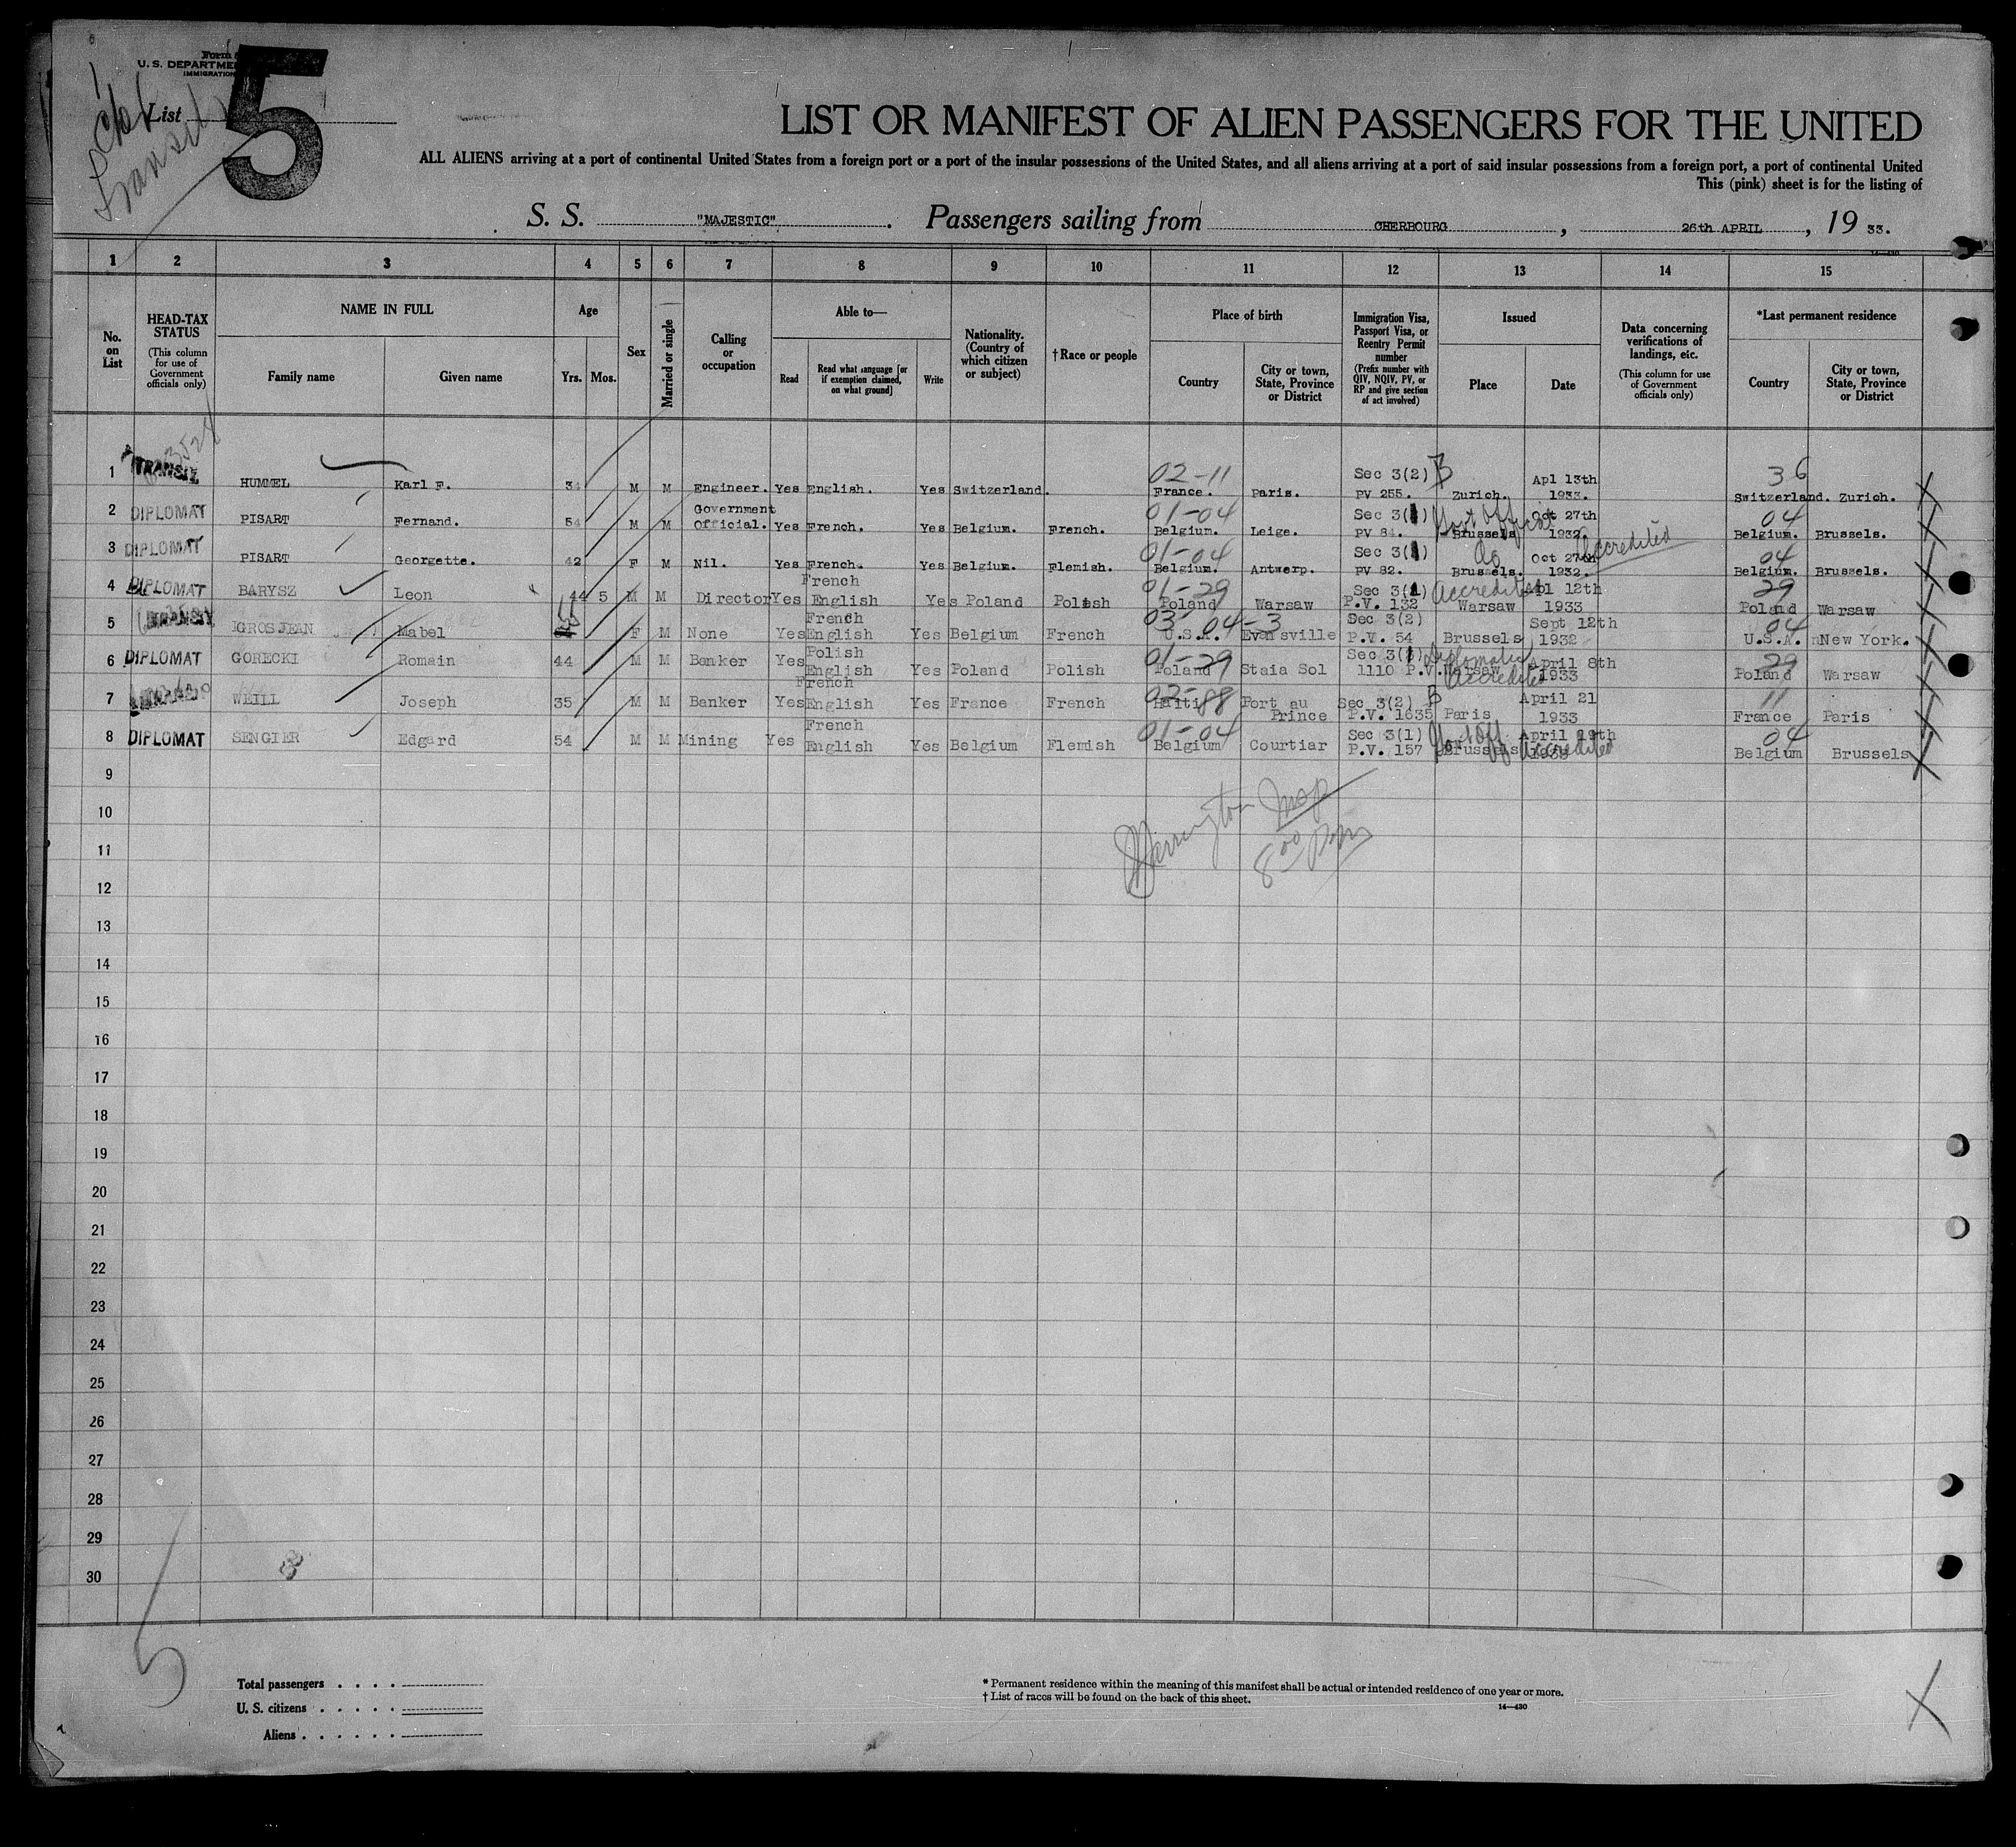 Form
U. S. DEPARTME
IMMIGRATION
List
5
Transit
LIST OR MANIFEST OF ALIEN PASSENGERS FOR THE UNITED
ALL ALIENS arriving at a port of continental United States from a foreign port or a port of the insular possessions of the United States, and all aliens arriving at a port of said insular possessions from a foreign port, a port of continental United
This (pink) sheet is for the listing of
S. S. "MAJESTIC". Passengers sailing from CHERBOURG, 26th APRIL, 19 33.
1 2 3 4 5 6 7 8 9 10 11 12 13 14 15
No. on List
HEAD-TAX STATUS (This column for use of Government officials only)
NAME IN FULL
Family name Given name
Age
Yrs. Mos.
Sex
Married or single
Calling or occupation
Able to—
Read Read what language [or if exemption claimed, on what ground] Write
Nationality. (Country of which citizen or subject)
†Race or people
Place of birth
Country City or town, State, Province or District
Immigration Visa, Passport Visa, or Reentry Permit number (Prefix number with QIV, NQIV, PV, or RP and give section of act involved)
Issued
Place Date
Data concerning verifications of landings, etc. (This column for use of Government officials only)
*Last permanent residence
Country City or town, State, Province or District
1 TRANSIT HUMMEL Karl F. 34 M M Engineer. Yes English. Yes Switzerland. 02-11 France. Paris. Sec 3(2) B PV 255. Zurich. Apl 13th 1933. 36 Switzerland. Zurich.
2 DIPLOMAT PISART Fernand. 54 M M Government Official. Yes French. Yes Belgium. French. 01-04 Belgium. Leige. Sec 3(1) PV 84. Brussels Oct 27th 1932. 04 Belgium. Brussels.
3 DIPLOMAT PISART Georgette. 42 F M Nil. Yes French. Yes Belgium. Flemish. 01-04 Belgium. Antwerp. Sec 3(1) PV 82. do Brussels. Oct 27th 1932. Accredited 04 Belgium. Brussels.
4 DIPLOMAT BARYSZ Leon 44 5 M M Director Yes French English Yes Poland Polish 01-29 Poland Warsaw Sec 3(1) P.V. 132 Accredited Warsaw Apl 12th 1933 29 Poland Warsaw
5 GROSJEAN Mabel F M None Yes French English Yes Belgium French 03-04-3 U.S.A. Evansville Sec 3(2) P.V. 54 Brussels Sept 12th 1932 04 U.S.A. New York.
6 DIPLOMAT GORECKI Romain 44 M M Banker Yes Polish English Yes Poland Polish 01-29 Poland Staia Sol Sec 3(1) 1110 P.V. Diplomatic Warsaw Accredited April 8th 1933 29 Poland Warsaw
7 WEILL Joseph 35 M M Banker Yes French English Yes France French 02-88 Haiti Port au Prince Sec 3(2) B P.V. 1635 Paris April 21 1933 11 France Paris
8 DIPLOMAT SENGIER Edgard 54 M M Mining Yes French English Yes Belgium Flemish 01-04 Belgium Courtiar Sec 3(1) P.V. 157 Govt Off Brussels Accredited April 19th 1933 04 Belgium Brussels
9
10
11
12
13
14
15
16
17
18
19
20
21
22
23
24
25
26
27
28
29
30
8 00 pm
Total passengers
U. S. citizens
Aliens
* Permanent residence within the meaning of this manifest shall be actual or intended residence of one year or more.
† List of races will be found on the back of this sheet.
14—430